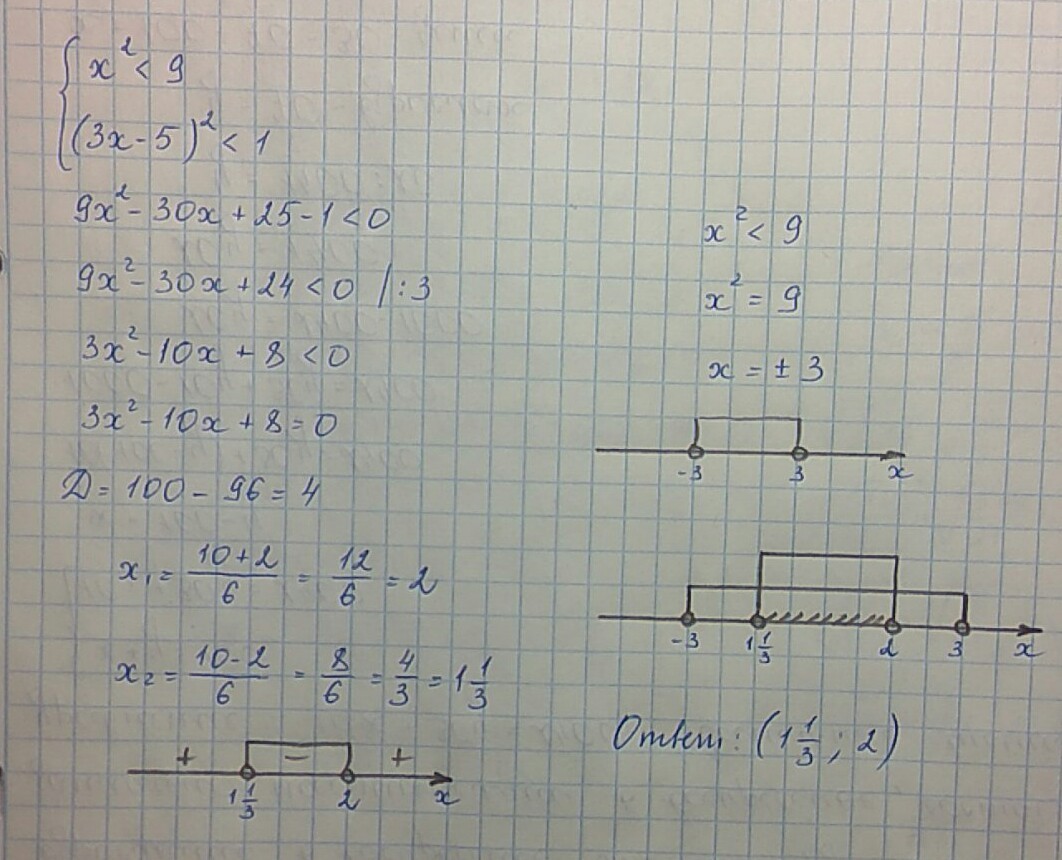 { x² < 9
(3x - 5)² < 1
9x² - 30x + 25 - 1 < 0
9x² - 30x + 24 < 0 | : 3
3x² - 10x + 8 < 0
3x² - 10x + 8 = 0
D = 100 - 96 = 4
x₁ = (10 + 2)/6 = 12/6 = 2
x₂ = (10 - 2)/6 = 8/6 = 4/3 = 1 1/3
+ − +
1 1/3 2 x
x² < 9
x² = 9
x = ± 3
-3 3 x
-3 1 1/3 2 3 x
Ответ: (1 1/3 ; 2)